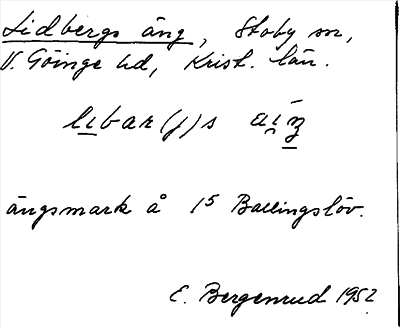 Lidbergs äng, Stoby sn,
V. Göinge hd, Krist. län.
lıbar(j)s aíʒ
ängsmark å 1⁵ Ballingslöv.
E. Bergenrud 1952